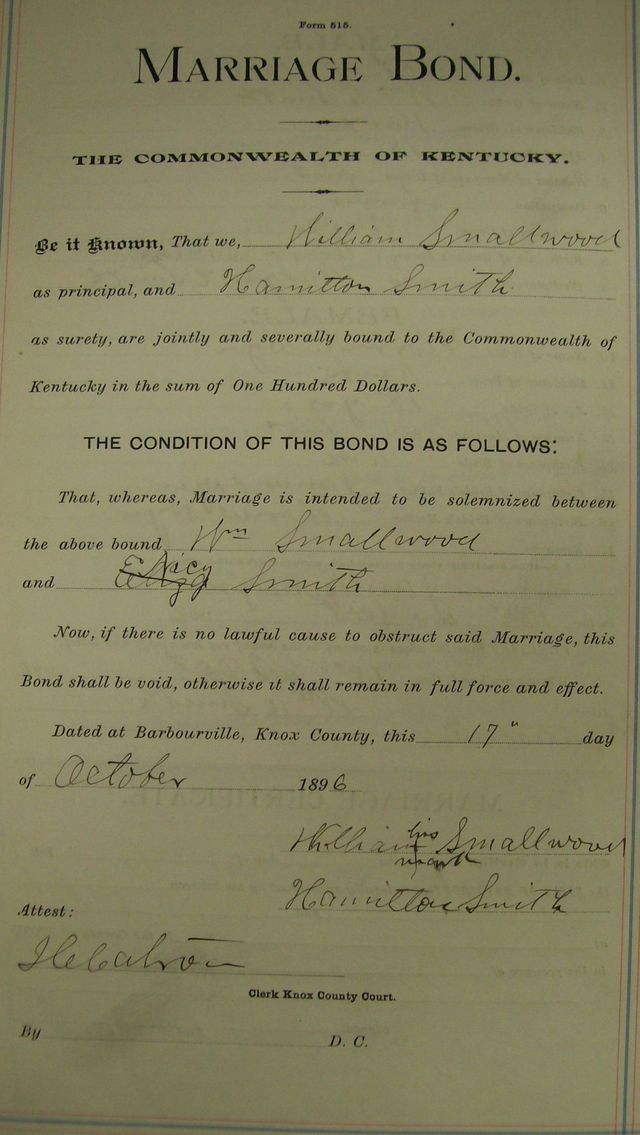 Form 515.
MARRIAGE BOND.
THE COMMONWEALTH OF KENTUCKY.
Be it Known, That we, William Smallwood
as principal, and Hamilton Smith
as surety, are jointly and severally bound to the Commonwealth of
Kentucky in the sum of One Hundred Dollars.
THE CONDITION OF THIS BOND IS AS FOLLOWS:
That, whereas, Marriage is intended to be solemnized between
the above bound Wm Smallwood
Nicy
and Smith
Now, if there is no lawful cause to obstruct said Marriage, this
Bond shall be void, otherwise it shall remain in full force and effect.
Dated at Barbourville, Knox County, this 17" day
of October 1896
his
William Smallwood
mark
Hamilton Smith
Attest:
Clerk Knox County Court.
By D. C.